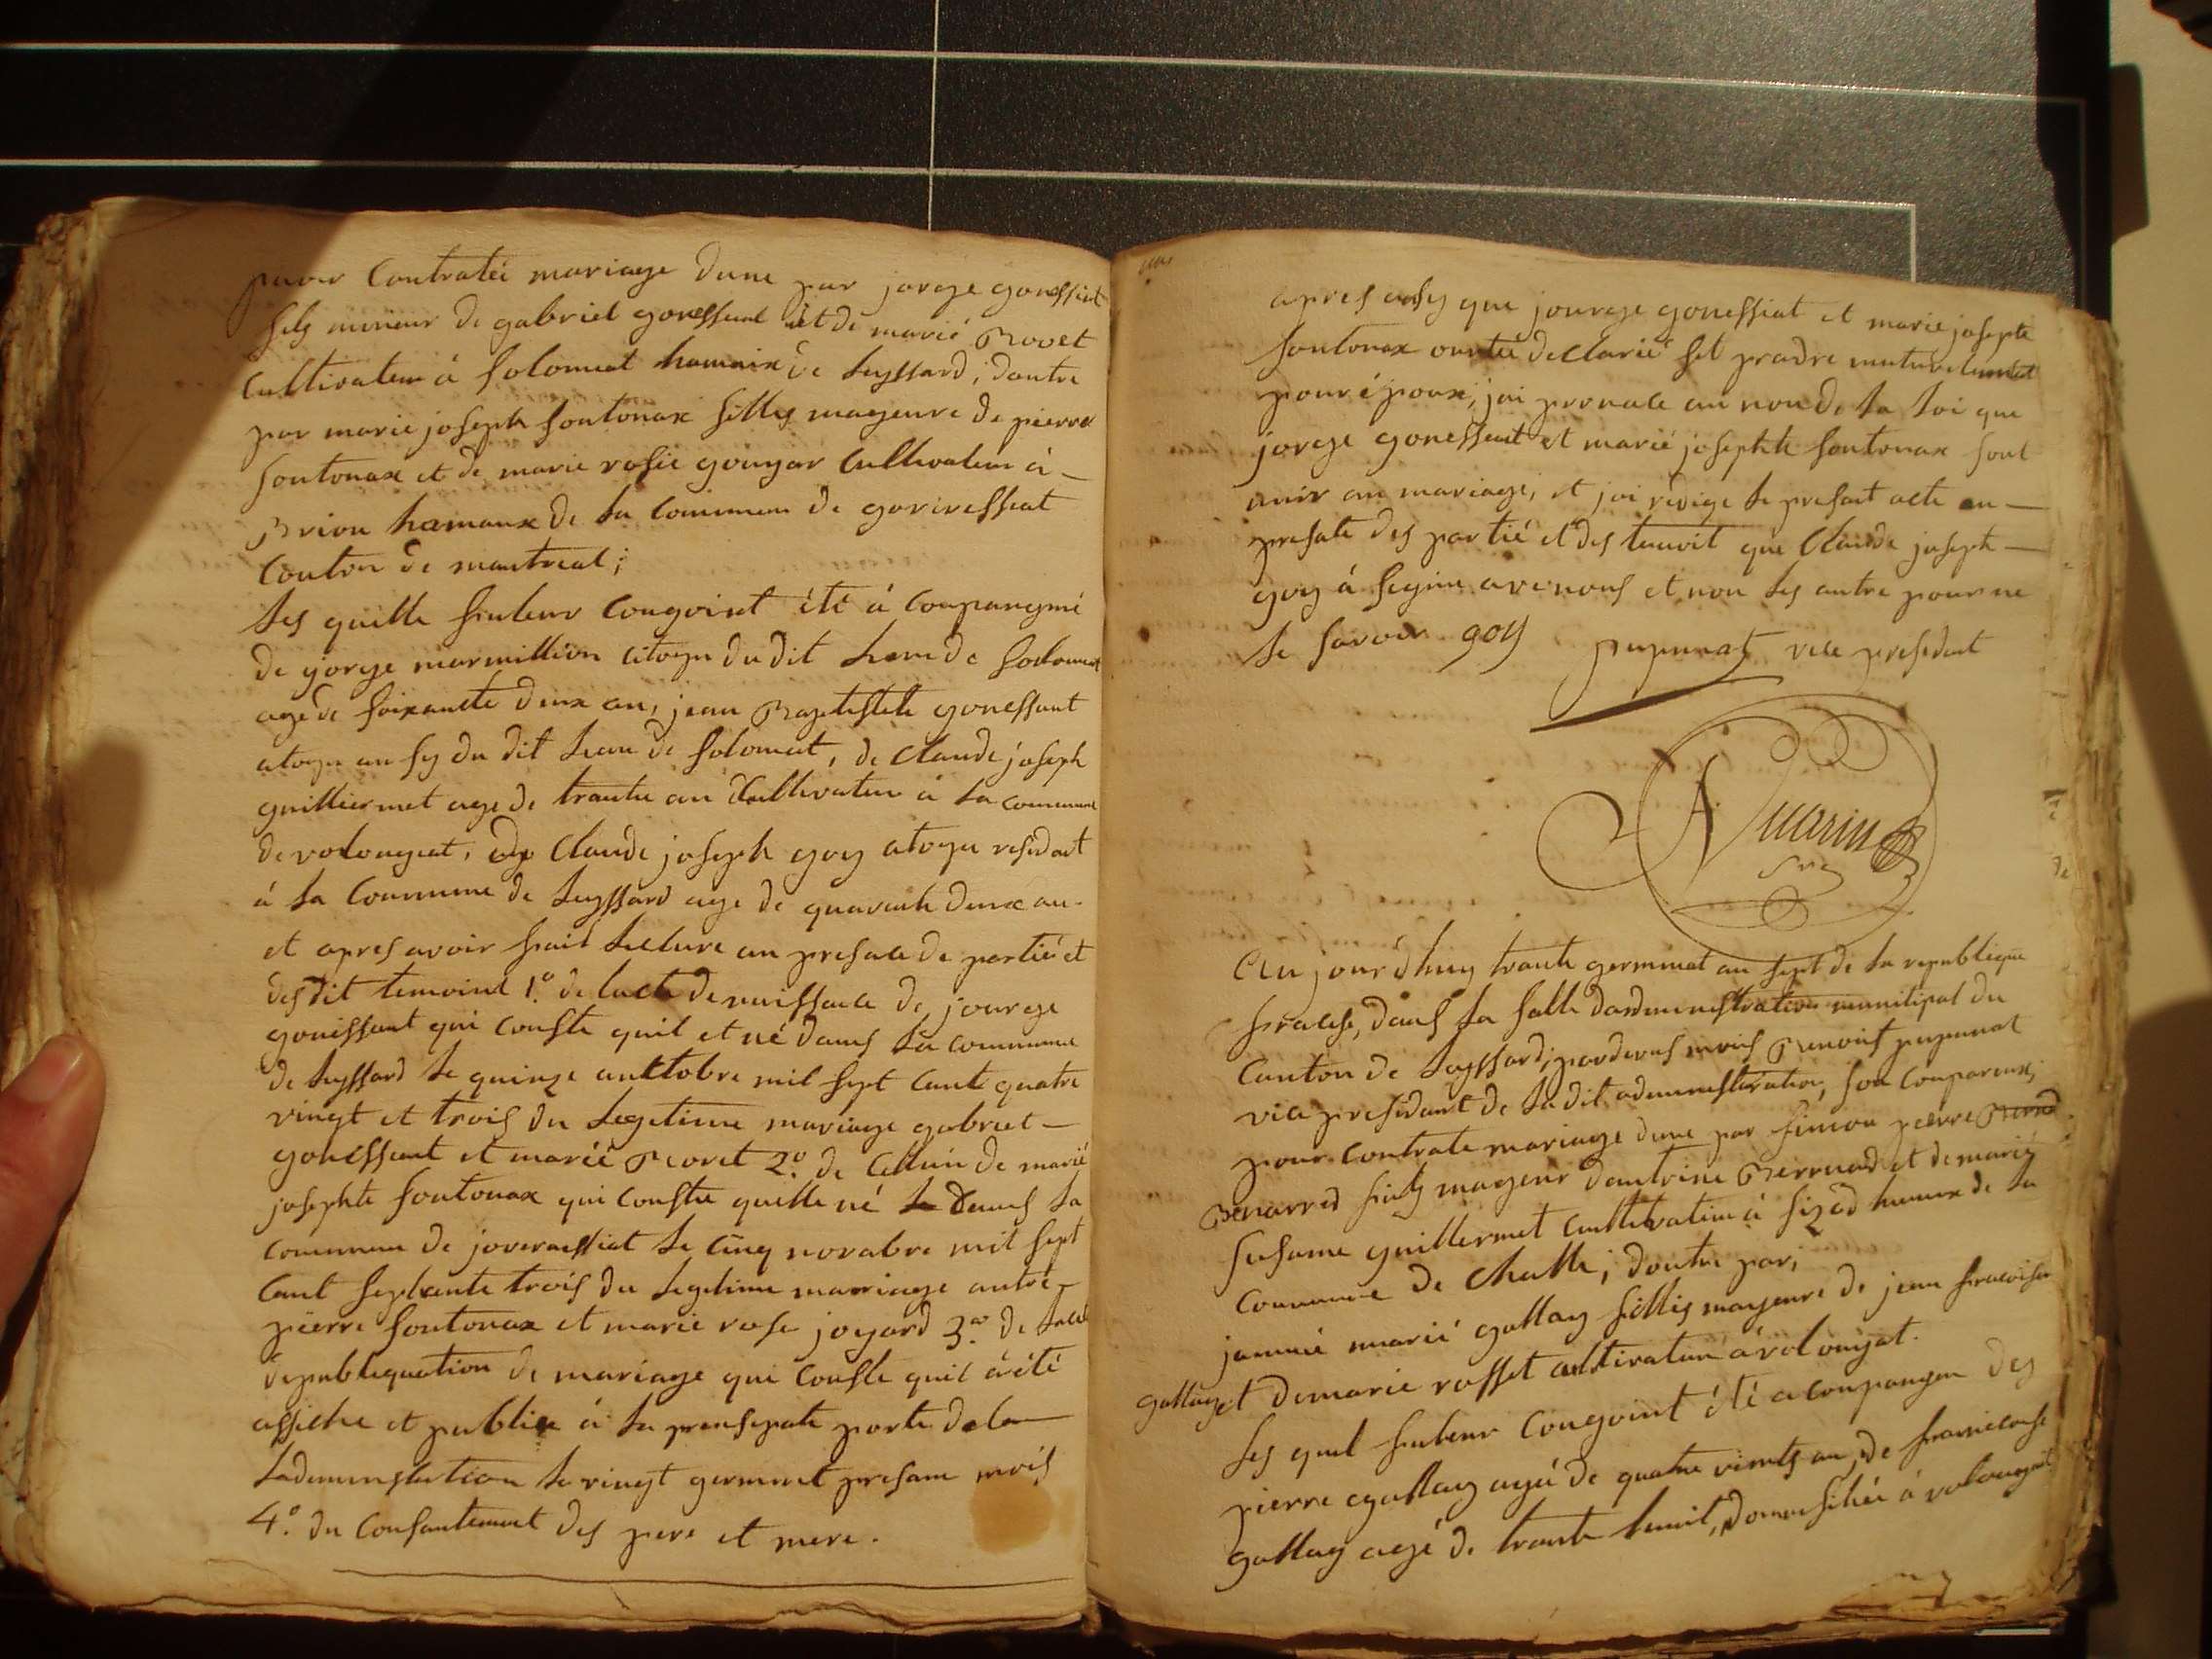 pour Contratéi mariage dune par jorge gonessiat
fils meneur de gabriel gonessiat et de marié Rovet
Cultivateur á solomiat hamaix de leyssard, dautre
par marie joseph fontonax filles mageure de pierre
fontonax et de marie rosie gouyar Cultivateur á
Brion hamaux de la Commune de goriressiat
Conton de montreal;
Les quelle futeur Congoint été á Coupangné
de gorge marmillion citoyn du dit lieu de solomiat
age de soixante deux an, jean Baptistete gonessiat
citoyn ausy du dit lieu de solomiat, de Claude joseph
guilliermet age de trante an Cultivateur á la commune
de volongnat, de Claude joseph goy citoyn residant
á la Commune de leyssard age de quarente deux an
et apres avoir fait lecture an presance de partié et
des dit temoint 1º. de lacte de naissance de jourge
gonissiat qui Conste quil et né dans la commune
de leyssard le quinze auctobre mil sept Cant quatre
vingt et trois du legitime mariage gabriel
gonessiat et marié Rovet 2º. de Cellui de marié
josephte fontonax qui Conste quelle né le dans la
commune de joveressiat le Cinq novabre mil sept
Cant septante trois du legitime mariage antre
pierre fontonax et marie rose joyard 3º. de lacte
de publiquation de mariage qui Conste quil á été
affiche et publier á la prensepale porte de la
Ladmenistration le vingt germinal presant mois
4º. du Consantement des pere et mere.
apres ausy que jourge gonessiat et marie josephte
fontonax ontée declarié set prandre mutuelement
pour époux, jai pronale au non de la loi que
jorge gonessiat et marié josephte fontonax sont
unir an mariage, et jai redige le presant acte an
presate des partié et des temoit que Claude joseph
goy á segnie avenous et non les autre pour ne
le savoir goy pupunat vice presedant
A Marin
Sre
Aujourdhuy trante germinal an sept de la republique
fracese, dans la salle dardmenistration munitipal du
Canton de leyssard, pardevant mois Benoist pupunat
vice presidant de la dit admenistration, son Compareux,
pour Contrate mariage dune par simon pierre Bernad
Benarred fils mageur dantoine Bernard et de marié
susanne guillermet Cultivateur á sizod hamux de la
Commune de Challe; dautre par,
jammé marié gallay filles mageure de jean francoise
gallay et de marie rosset cultivateur á volongat.
Les quel futeur Congoint été acoupangne des
pierre gallay agé de quatre vints an, de francoise
gallay agé de trante huit, domesilié á volongnat